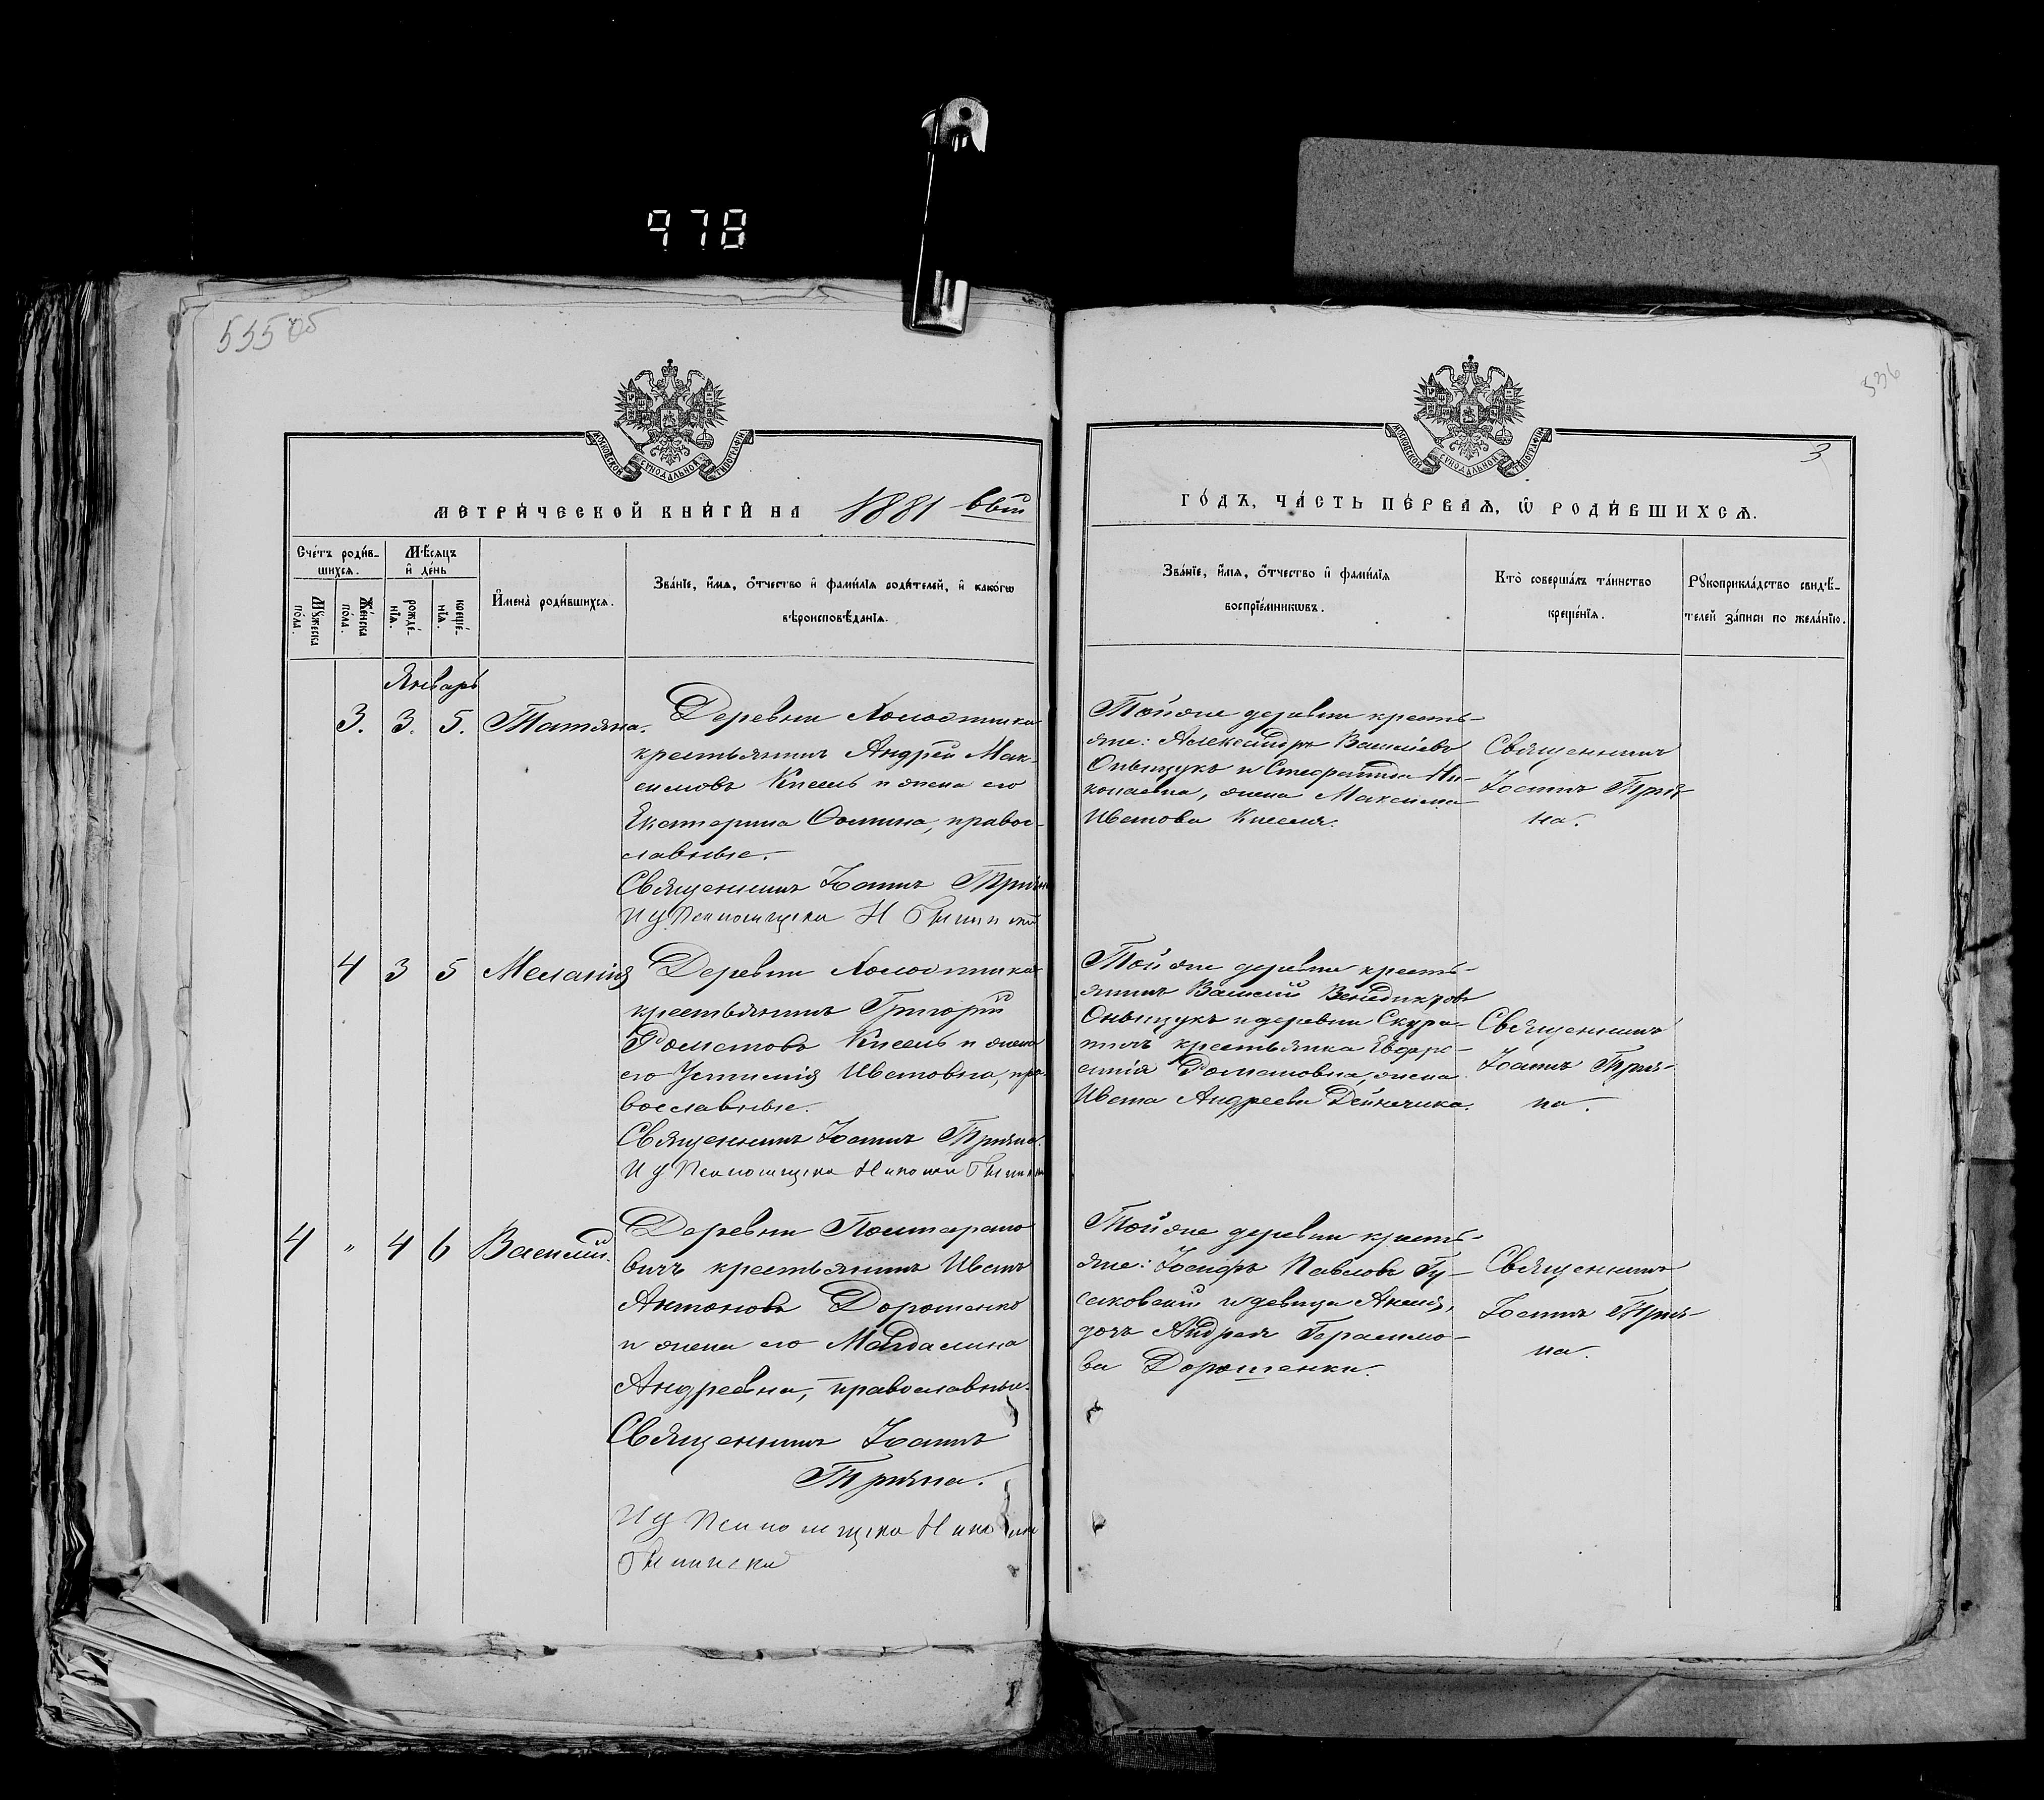 978
535
МОСКОВСКОЙ СѴНОДАЛЬНОЙ ТИПОГРАФІИ
МЕТРИ́ЧЕСКОЙ КНИ́ГИ НА 1881 вый
Сче́тъ роди́в-
шихсѧ.
Мѣ́сѧцъ
и҆ де́нь
Мꙋ́жеска
по́ла.
Же́нска
по́ла.
рожде́-
нїѧ.
креще́-
нїѧ.
И҆мена̀ роди́вшихсѧ.
Зва́нїе, и҆́мѧ, ѻ҆́тчество и҆ фами́лїѧ роди́телей, и҆ како́гѡ
вѣроисповѣ́данїѧ.
Январь
3. 3. 5. Татьяна.
Деревни Холостника
крестьянинъ Андрей Мак-
симовъ Кисель и жена его
Екатерина Фомина, правос-
лавные.
Священникъ Іоаннъ
4 3 5 Меланія
Деревни Холостника
крестьянинъ Григорій
Романовъ Кисель и жена
его Устинія Ивановна, пра-
вославные.
Священникъ Іоаннъ
4 " 4 6 Василій.
Деревни
крестьянинъ Иванъ
Антоновъ Дорошенко
и жена его Магдалина
Андреевна, православные.
Священникъ Іоаннъ
536
3
МОСКОВСКОЙ СѴНОДАЛЬНОЙ ТИПОГРАФІИ
ГО́ДЪ, ЧА́СТЬ ПЕ́РВАѦ, Ѽ РОДИ́ВШИХСѦ.
Зва́нїе, и҆́мѧ, ѻ҆́тчество и҆ фами́лїѧ
воспрїе́мникѡвъ.
Кто̀ соверша́лъ та́инство
креще́нїѧ.
Рꙋкоприкла́дство свидѣ́-
телей за́писи по жела́нїю.
Тойже деревни кресть-
яне: Александръ Васильевъ
Онищукъ и Стефанида Ни-
колаевна, жена Максима
Иванова Киселя.
Священникъ
Іоаннъ
Тойже деревни кресть-
янинъ Василій Венедиктовъ
Онищукъ и деревни
крестьянка Евфро-
синія Романовна, жена
Ивана Андреева Дейнечика.
Священникъ
Іоаннъ
Тойже деревни кресть-
яне: Іосифъ Павловъ Гу-
саковскій и девица Анна,
дочь Андрея Герасимо-
ва Дорошенки.
Священникъ
Іоаннъ